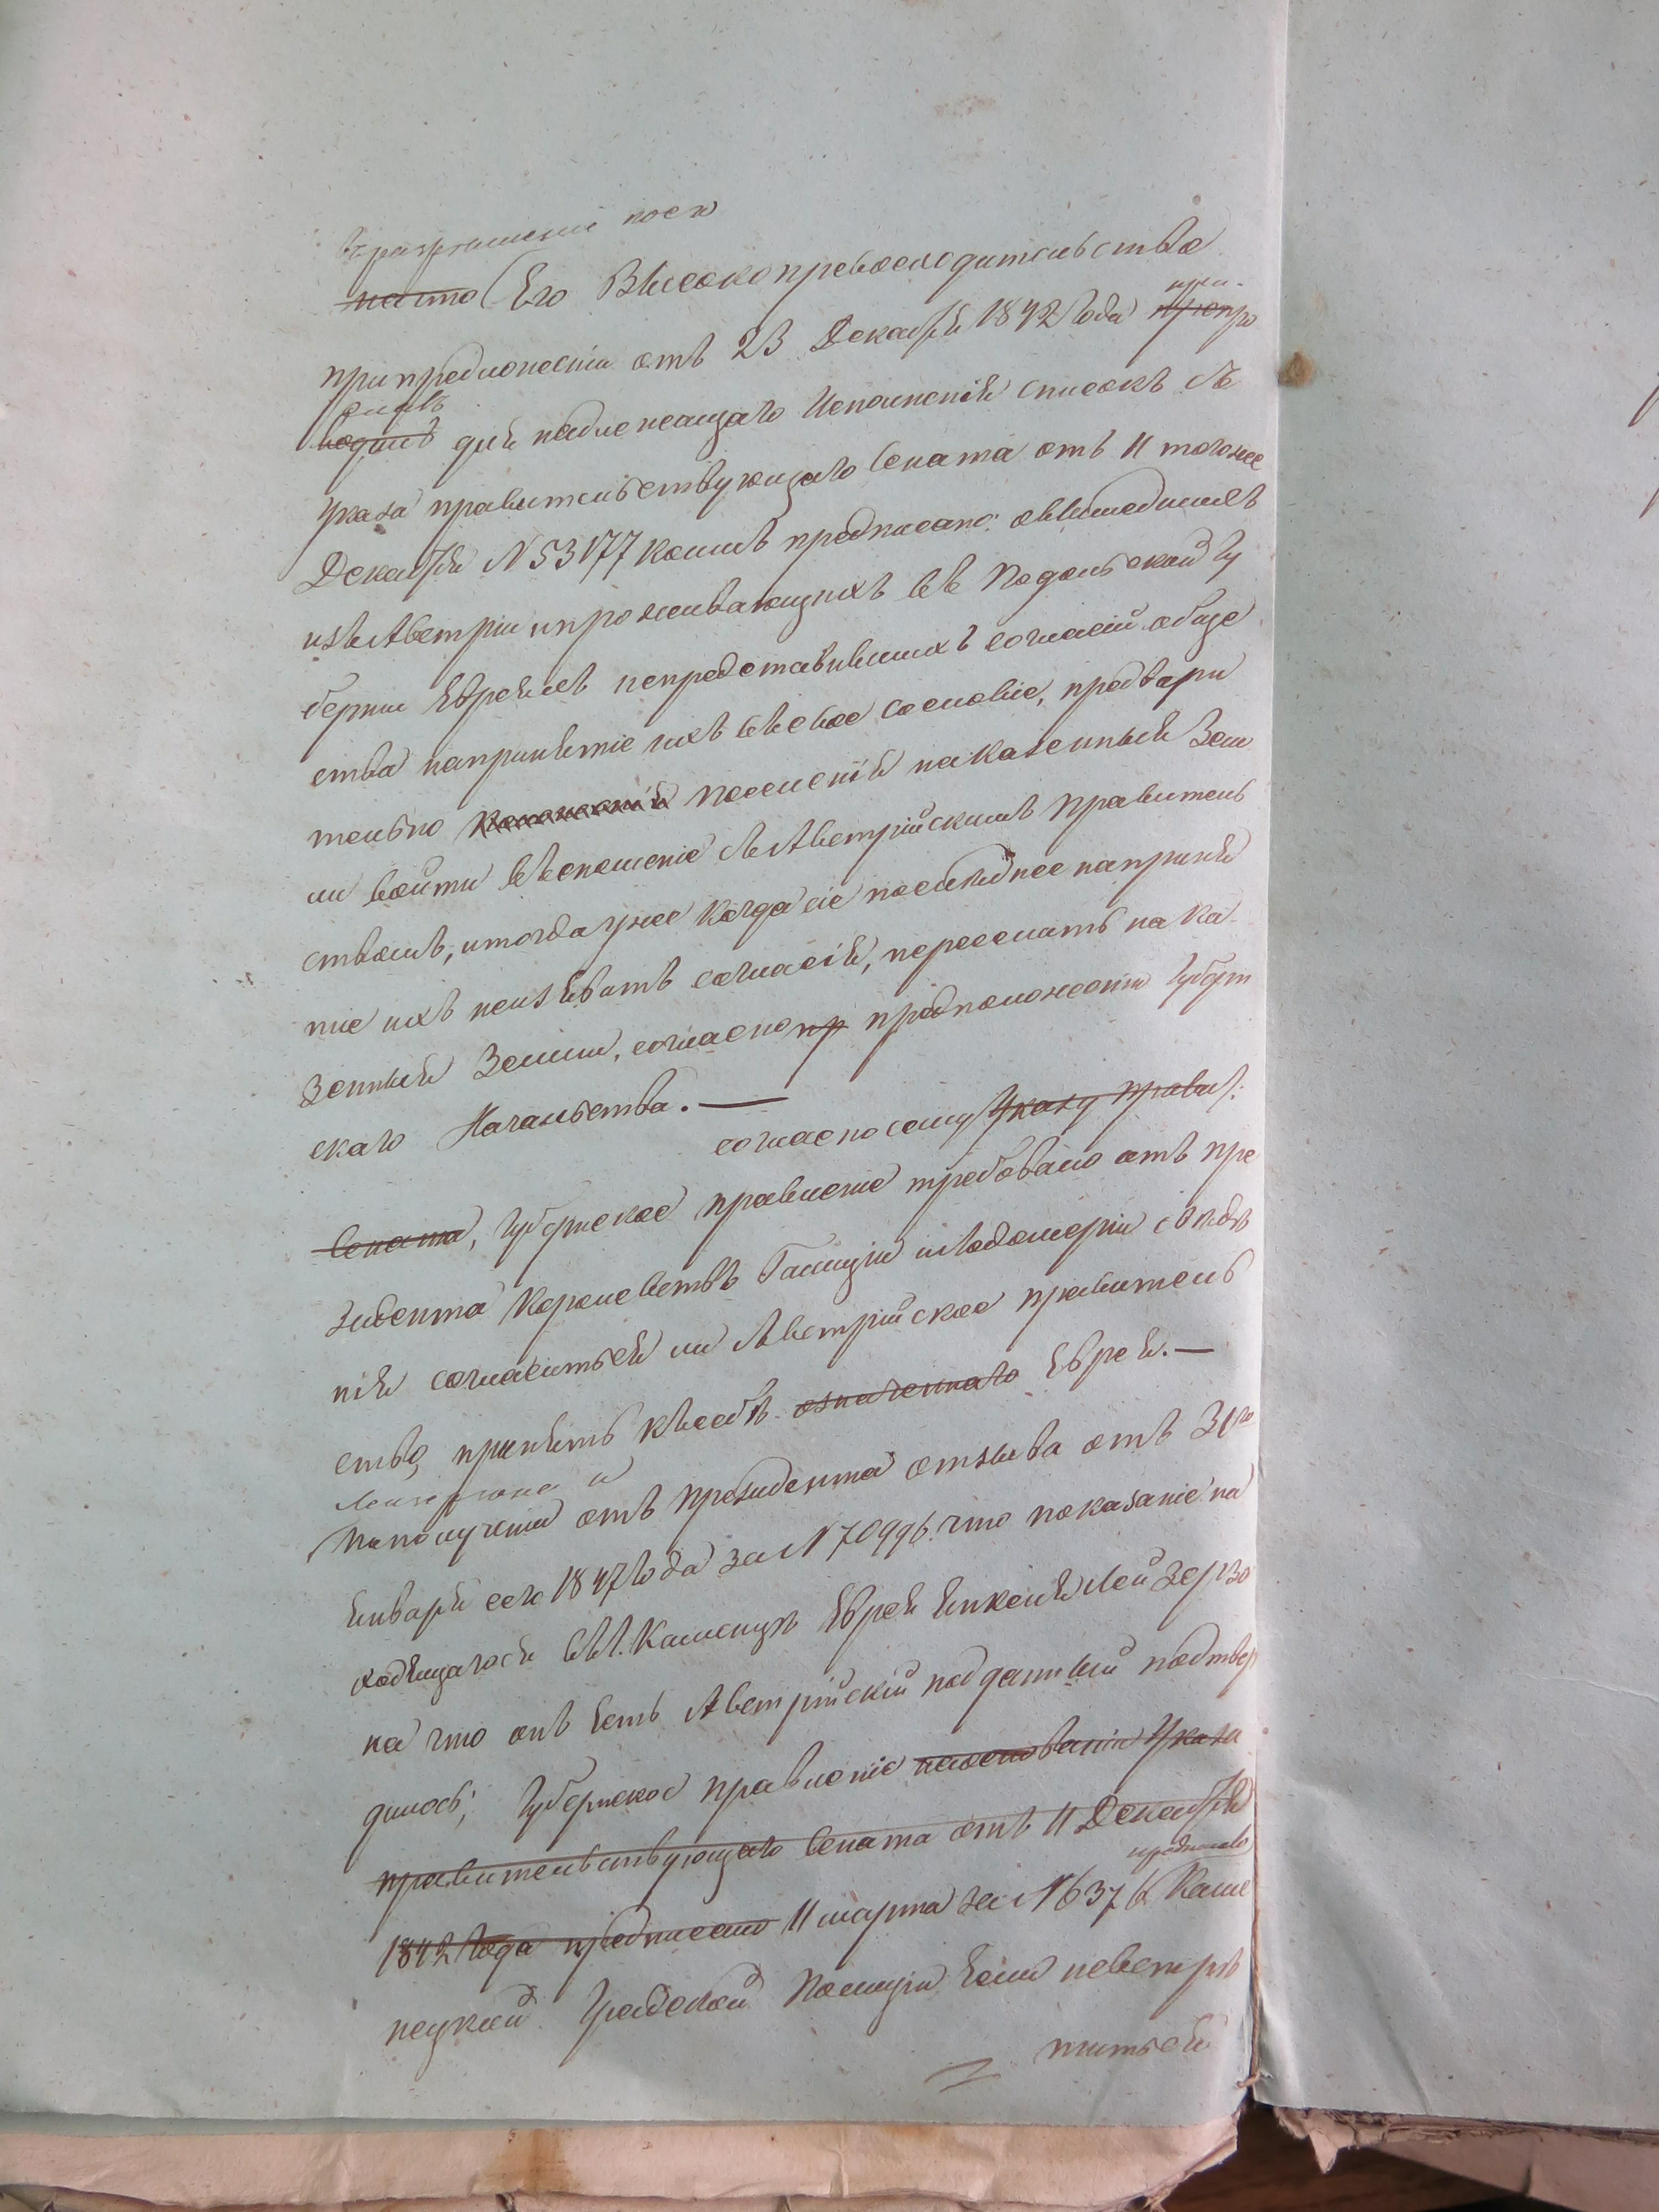 въ разрешеніе коего
на что Его Высокопревосходительство
при предложеніи отъ 23 Декабря 1842 Года при-
препро
слалъ
водилъ для надлежащаго Исполненія списокъ съ
указа правительствующаго Сената отъ 11 тогоже
Декабря N 53177 коимъ предписано: о вышедшихъ
изъ Австріи и проживающихъ въ Подольской Гу
берніи Евреяхъ непредставившихъ согласій обще
ства на принятіе ихъ въ свое сословіе, предвари
тельно поселенія на Казенныя Зем
ли войти въ сношеніе съ Австрійскимъ Правитель
ствомъ, и тогда уже когда сіе последнее на приня
тіе ихъ неизъявитъ согласія, переселить на Ка-
зенныя Земли, согласно пр предположенію Губерн
скаго Начальства. —
согласно сему Указу Правит:
Сената, Губернское правленіе требовало отъ пре
зидента Королевствъ Галиціи и Лодомеріи сведе
нія согласится ли Австрійское правитель
ство, принять къ себе означеннаго Еврея. —
Лейзерзона и
По полученіи отъ президента отзыва отъ 31го
Января сего 1847 Года за N 70996. что показаніе на
ходящагося въ Г. Каменце Еврея Янкеля Лейзерзо
на что онъ есть Австрійскій подданный подтвер
дилось; Губернское правленіе на основаніи Указа
правительствующаго Сената отъ 11 Декабря
предписало
1842 Года предписало 11 марта за N 6376 Каме
нецкой Градской Полиціи Если невстре
тится